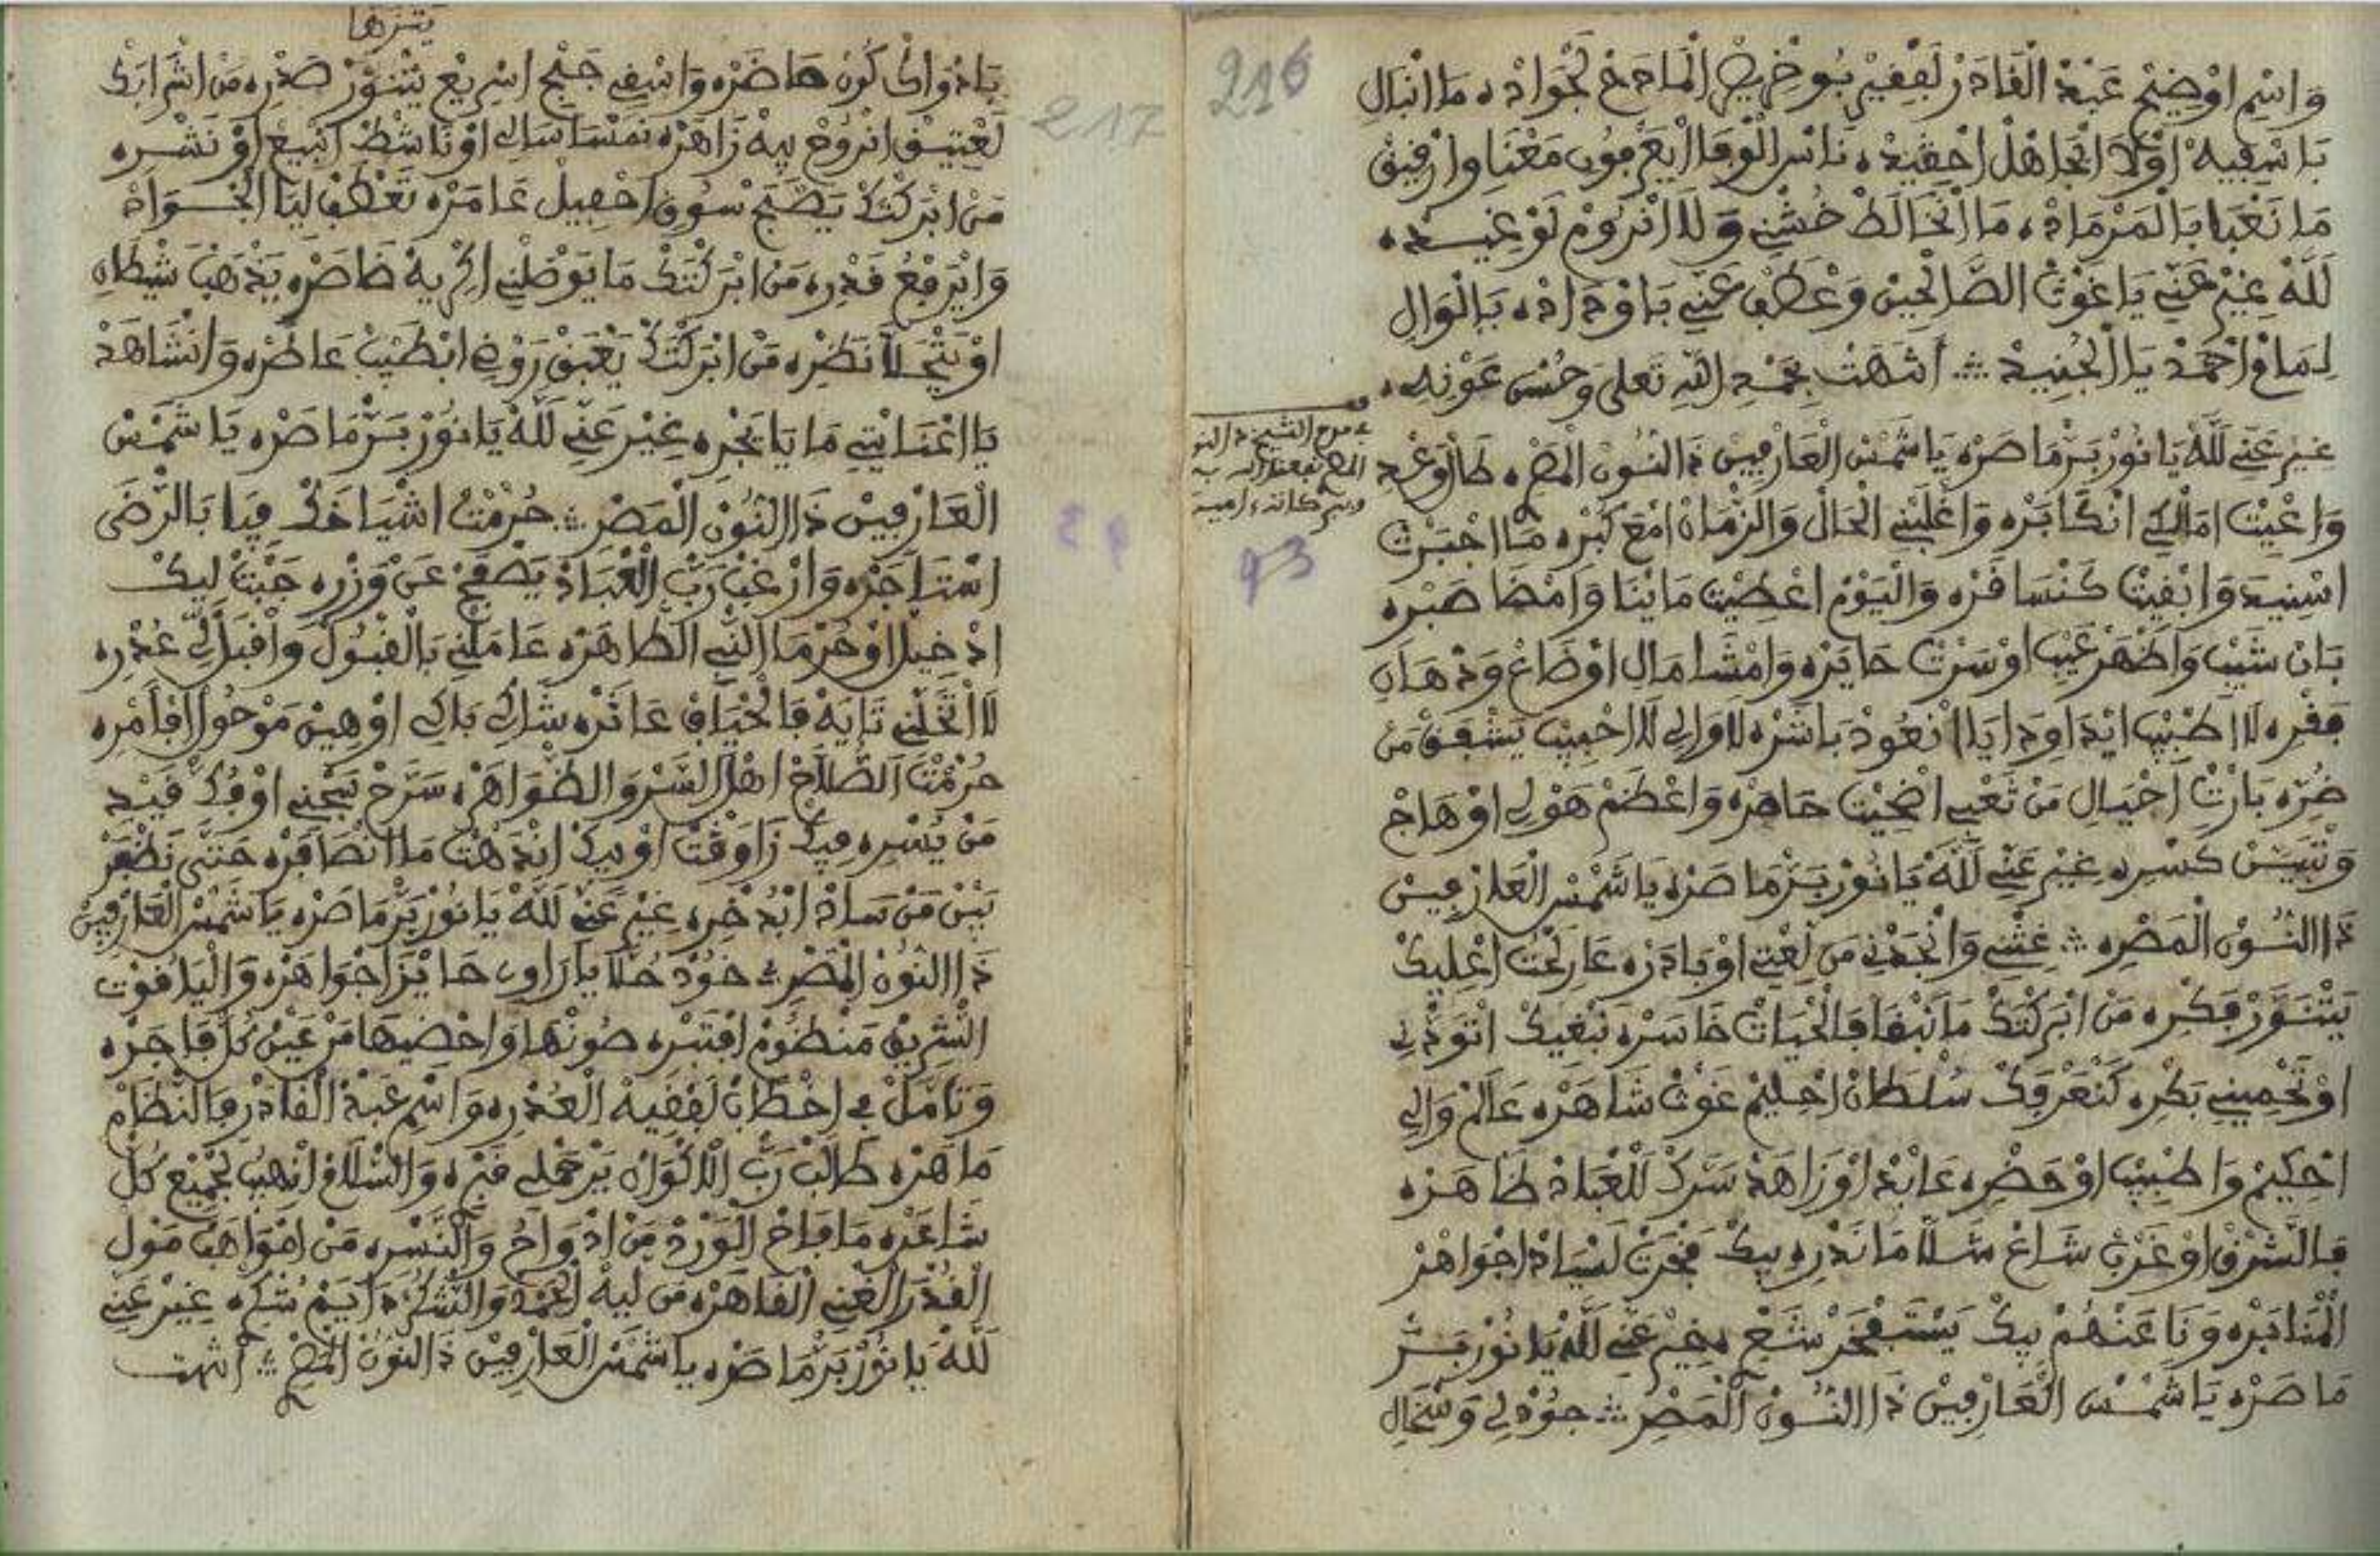 216
وَاسْمِ اوْضِيحْ عَبْدْ الْقَادَرْ لَفْقِيرْ بُوخْرِيصْ الْمَادَحْ لَجْوَادْ، مَا انْبَالِ
بَاسْفِيهْ اوْلَا انْجَاهَلْ احْقِيدْ، نَاسْ الْوَفَا ايْعَرْفُونْ مَعْنَايَا وارْفِيقْ
مَا نَعْبَا بَالْمَرْمَادْ، مَا انْخَالَطْ خُشْنِي وَلَا انْرُومْ لَوْغِيدْ،
لَلَّهْ غِيرْ عَنِّي يَا غَوْثْ الصَّالْحِينْ وَعْطَفْ عَنِّي بَاوْدَادْ، يَالْوَالِ
لِمَامْ احْمَدْ يَا الْجُنِيدْ انتهت بحَمْدِ اللهِ تَعلى وَحُسْنِ عَوْنِه،
غِيرْ عَنِّي لَلَّهْ يَا نُورْ بَرّْ مَاصَرْ، يَا شَمْسْ الْعَارْفِينْ ذَ النُّونْ الْمَصْرِ، طَالْ وَعْدِ
في مدح الشيخ ذ النون
المصر نفعنا الله به
وببركاته، امين
93
وَاعْيِيتْ امَّالْكِي انْكَابَرْ، وَاغْلَبْنِي الْحَالْ وَالزْمَانْ امْعَ كَبْرِ، مَا اجْبَرْتْ
اسْنِيدْ وَابْقِيتْ كَنْسَافَرْ، وَالْيَوْمْ اعْصِيتْ مَا بْنَا وَامْضَا صَبْرِ،
بَانْ شَيْبِ وَاظْهَرْ عَيْبِ اوْسَرْتْ حَايَرْ، وَامْشَا مَالِ اوْضَاعْ وَدْهَانِ
فَقْرِ، لَا اطْبِيبْ ايْدَاوِ دَايَا انْعُودْ بَاشَرْ، لَا وَالِي لَا احْبِيبْ يَشْفَقْ مَنْ
ضُرِّ، بَارْتْ احْيَالِ مَنْ تَعْبِي اضْحِيتْ حَاهَرْ، وَاعْظَمْ هَوْلِي اوْهَاجْ
وَتْبَيَّنْ كَسْرِ، غِيرْ عَنِّي لَلَّهْ يَا نُورْ بَرّْ مَاصَرْ، يَا شَمْسْ الْعَارْفِينْ
ذَا النُّونْ الْمَصْرِ، غِثْنِي وَانْجَدْنِي مَنْ لَعْتِي اوْبَادَرْ، عَارِ لَحْتْ اعْلِيكْ
يَتْنَوَّرْ فِكْرِ، مَنْ ابْرَكْتَكْ مَا نَبْقَا فَالْحْيَاتْ خَاسَرْ، نَبْغِيكْ اتْوَدْنِي
اوْتَحْمِينِي بَكْرِ، كَنْعَرْفَكْ سُلْطَانْ احْلِيمْ غَوْثْ شَاهَرْ، عَالَمْ وَالِي
احْكِيمْ وَاطْبِيبْ اوْحَضْرِ، عَابَدْ اوْزَاهَدْ سَرَّكْ لَلْعْبَادْ ظَاهَرْ،
فَالشَّرْقْ اوْغَرْبْ شَاعْ شَلَّا مَا نَدْرِ، بِيكْ فَخْرَتْ لَسْيَادْ اجْوَاهَرْ
الْمْنَابَرْ، وَنَا عَنْهُمْ بِيكْ يَسْتَفْخَرْ شَعْرِ، غِيرْ عَنِّي لَلَّهْ يَا نُورْ بَرّْ
مَاصَرْ، يَا شَمْسْ الْعَارْفِينْ ذَا النُّونْ الْمَصْرِ جُودْ لِي وَسْخَالِ
217
يتنزها
بَادْوَاكْ كُونْ حَاضَرْ، وَاشْفِي جَيْحْ اسْرِيعْ يَتْنَوَّرْ صَدْرِ، مَنْ اشْرَابَكْ
لَعْتِيقْ انْرُوحْ بِيهْ زَاهَرْ، نَمْسَا سَالِي اوْنَاشْطْ انْبِيعْ اوْنَشْرِ،
مَنْ ابْرَكْتَكْ يَصْبَحْ سُوقِ احْفِيلْ عَامَرْ، تَعْطَفْ لِيَّا الْجْوَادْ
وَايْرَفْعُ قَدْرِ، مَنْ ابْرَكْتَكْ مَا يَوْصَلْنِي اكْرِيهْ خَاصَرْ، يَدْهَبْ شَيْطَانِ
اوْيَتْجَلَّا نَظْرِ، مَنْ ابْرَكْتَكْ يَعْبَقْ رَوْضِي ابْطَيبْ عَاطَرْ، وَانْشَاهَدْ
يَا اعْنَايْتِي مَا يَا يَجْرِ، غِيرْ عَنِّي لَلَّهْ يَا نُورْ بَرّْ مَاصَرْ، يَا شَمْسْ
الْعَارْفِينْ ذَا النُّونْ الْمَصْرِ حُرْمْتْ اشْيَاخَكْ فِيَا بَالرّْضَى
اسْتَاجَرْ، وَارْغَبْ رَبّْ الْعْبَادْ يَصْفَحْ عَنْ وَزْرِ، جَيْتْ لِيكْ
ادْخِيلْ اوْحُرْمَا النّْبِي الطَّاهَرْ، عَامَلْنِي بَالْقْبُولْ وَاقْبَلْ لِي عُدْرِ،
لَا اتْخَلْنِي تَايَهْ فَالْحْيَافِ عَاثَرْ، شَاكِي بَاكِي اوْهِينْ مَوْحُولْ افَامْرِ،
حُرْمْتْ الصُّلَّاحْ اهْلْ السَّرّْ وَالظْوَاهَرْ، سَرَّحْ سَجْنِي اوْفُكّْ قَيْدِ
مَنْ يُسْرِ، فِيكْ زَاوَقْتْ اوْبِيكْ انْدَهْتْ مَا انْصَافَرْ، حَتَّى نَظْفَرْ
بَيْنْ مَنْ سَادْ ابْدْخْرِ، غِيرْ عَنِّي لَلَّهْ يَا نُورْ بَرّْ مَاصَرْ، يَا شَمْسْ الْعَارْفِينْ
ذَا النُّونْ الْمَصْرِ خُودْ حُلَّا يَا رَاوِي حَايْزَا جْوَاهَرْ، وَالْيَاقُوتْ
الشّْرِيقْ مَنْظُومْ افْتَبْرِ، صُونْهَا وَاحْضِيهَا مَنْ عَيْنْ كُلّْ فَاجَرْ،
وَتَامَّلْ فِي اخْطَابْ لَفْقِيهْ الْعُدْرِ، وَاسْمِ عَبْدْ الْقَادَرْ فَالنّْظَامْ
مَاهَرْ، طَالَبْ رَبّْ الَاكْوَانْ يَرْحَمْ لِي قَبْرِ، وَالسْلَامْ انْهِيبُ لَجْمِيعْ كُلّْ
شَاعَرْ، مَا فَاحْ الْوَرْدْ مَنْ ادْوَاحُ وَالنَّسْرِ، مَنْ امْوَاهَبْ مَوْلِ
الْقُدْرَا الْغْنِي الْقَاهَرْ، مَنْ لِيهْ الْحَمْدْ وَالشُّكْرْ دَايَمْ شُكْرِ، غِيرْ عَنِّي
لَلَّهْ يَا نُورْ بَرّْ مَاصَرْ، يَا شَمْسْ الْعَارْفِينْ ذَا النُّونْ الْمَصْرِ انتهت